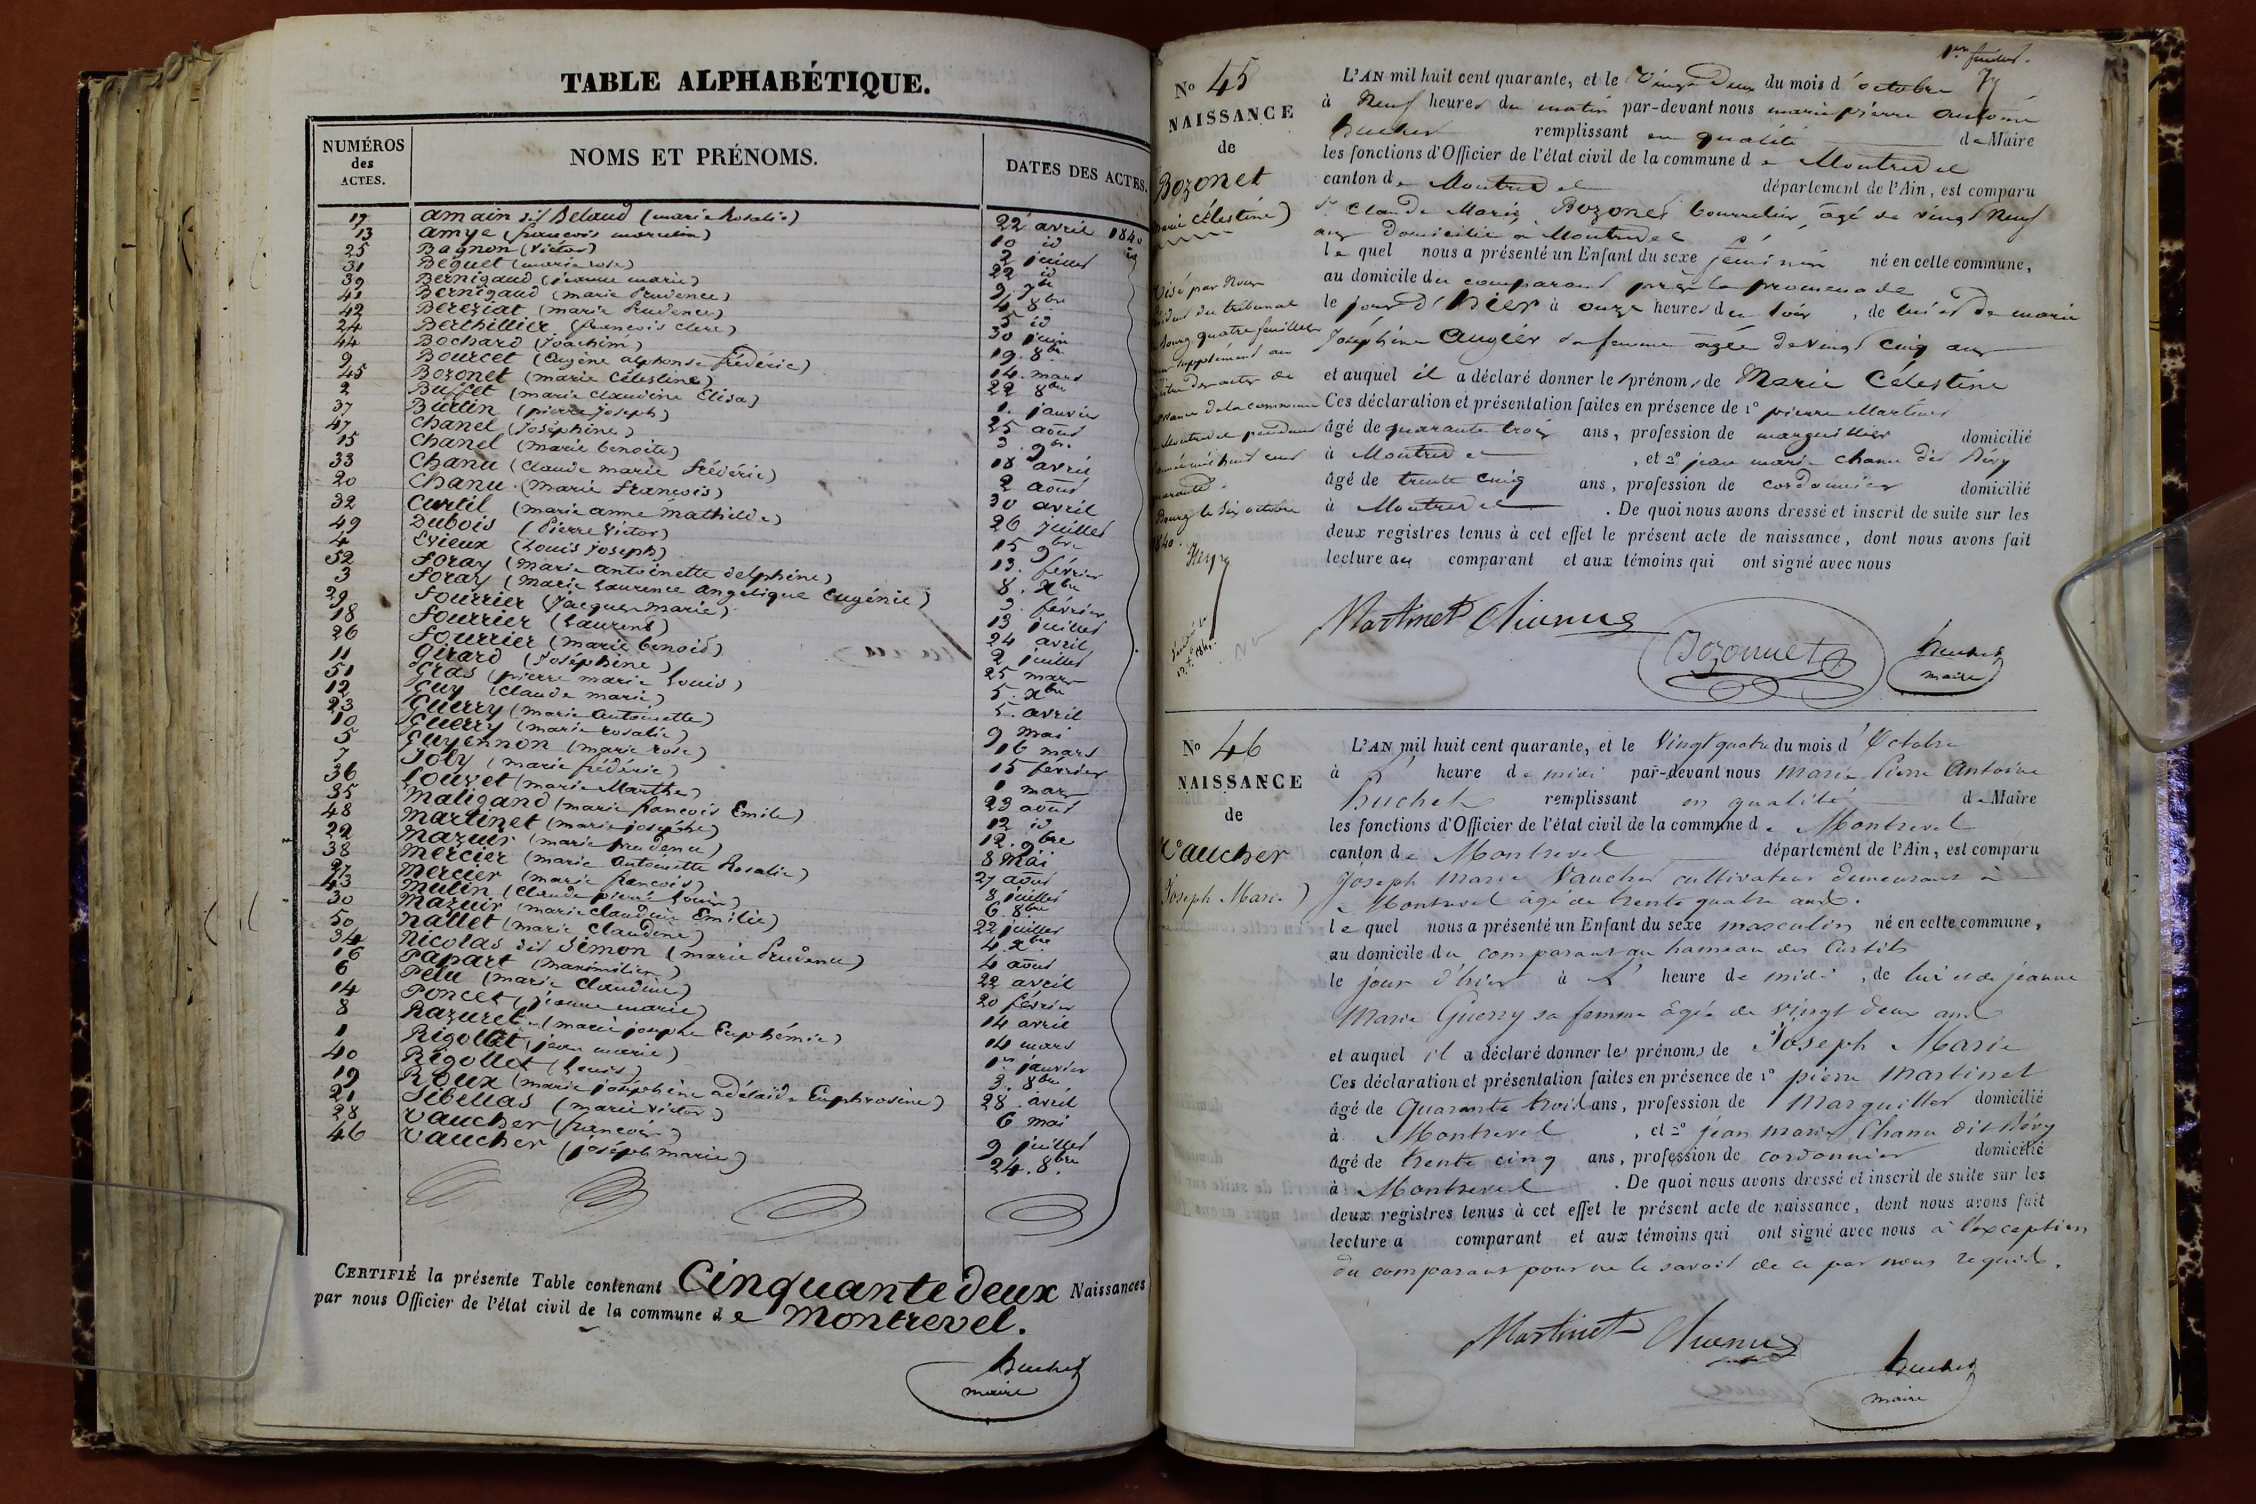 TABLE ALPHABÉTIQUE.
NUMÉROS des ACTES. NOMS ET PRÉNOMS. DATES DES ACTES.
17 amain dit Belaud (marie Rosalie) 22 avril 1840
13 amye (françois marulin) 10 id
25 Bagnon (Victor) 2 juillet
31 Béguet (marie rose) 22 id
39 Bernigaud (jeanne marie) 9. 7bre
41 Bernigaud (marie Prudence) 4. 8bre
42 Bereziat (marie Prudence) 5 id
24 Berthillier (françois clere) 30 juin
44 Bochard (Joachim) 19. 8bre
9 Bourcet (Eugène alphonse frédéric) 14. mars
45 Bozonet (marie Célestine) 22 8bre
2 Buffet (marie claudine Elisa) 1. janvier
37 Burtin (pierre joseph) 25 août
47 Chanel (Joséphine) 3. 9bre
15 Chanel (marie benoite) 18 avril
33 Chanu (Claude marie frédéric) 2 août
20 Chanu (marie françois) 30 avril
32 Curtil (marie anne mathilde) 26 juillet
49 Dubois (Pierre Victor) 15 9bre
4 Evieux (Louis joseph) 13. février
52 foray (marie antoinette delphine) 8. Xbre
3 foray (marie laurence angélique Eugénie) 3. février
29 fourrier (jacques marie) 13 juillet
18 fourrier (laurent) 24 avril
26 fourrier (marie benoit) 2 juillet
11 Girard (Joséphine) 25 mars
51 Gras (pierre marie Louis) 5. Xbre
12 Guy (claude marie) 5. avril
23 Guerry (marie antoinette) 9 mai
10 Guerry (marie rosalie) 16 mars
5 Guyennon (marie rose) 15 février
7 Joly (marie frédéric) 1 mars
36 Louvet (marie Marthe) 23 août
35 Maligand (marie françois Emile) 12 id
48 Martinet (marie josephe) 12. 9bre
22 Mazuir (marie prudence) 8 Mai
38 Mercier (marie Antoinette Rosalie) 27 août
27 Mercier (marie françois) 8 juillet
43 Mulin (Claude pierre Louis) 6. 8bre
30 Mazuir (marie claudine Emilie) 22 juillet
50 Nallet (marie Claudine) 4. Xbre
34 Nicolas dit Simon (marie Prudence) 4 août
16 Papart (maximilien) 22 avril
6 Pelu (marie Claudine) 20 février
14 Poncet (jeanne marie) 14 avril
8 Razurel (marie josephe Euphémie) 14 mars
1 Rigollet (jean marie) 1er janvier
40 Rigollet (Louis) 3. 8bre
19 Roux (marie joséphine adélaïde Euphrosine) 28 avril
21 Sibellas (marie victor) 6 mai
28 Vaucher (françois) 9 juillet
46 Vaucher (joséph marie) 24. 8bre
CERTIFIÉ la présente Table contenant Cinquante deux Naissances
par nous Officier de l'état civil de la commune de Montrevel.
huchet
maire
1er feuillet.
No 45
NAISSANCE
de
Bozonet
marie Célestine)
Visé par Nous
du tribunal
Bourg quatre feuillets
supplément au
des actes de
naissance de la commune
Montrevel pendant
mil huit cent
quarante.
Bourg le six octobre
1840.
L'AN mil huit cent quarante, et le Vingt Deux du mois d'octobre
à Neuf heures du matin par-devant nous marie pierre antoine
huchet remplissant en qualité de Maire
les fonctions d'Officier de l'état civil de la commune de Montrevel
canton de Montrevel département de l'Ain, est comparu
Sr Claude Marie Bozonet bourrelier âgé de vingt Neuf
ans domicilié à Montrevel
le quel nous a présenté un Enfant du sexe féminin né en cette commune,
au domicile du comparant près la promenade
le jour d'hier à onze heures du soir, de lui et de marie
Joséphine Augier sa femme âgée de vingt cinq ans
et auquel il a déclaré donner les prénoms de Marie Célestine
Ces déclaration et présentation faites en présence de 1o pierre Martinet
âgé de quarante trois ans, profession de marguillier domicilié
à Montrevel, et 2o jean marie chanu dit Dévy
âgé de trente cinq ans, profession de cordonnier domicilié
à Montrevel. De quoi nous avons dressé et inscrit de suite sur les
deux registres tenus à cet effet le présent acte de naissance, dont nous avons fait
lecture au comparant et aux témoins qui ont signé avec nous
Martinet Chanu
Bozonnet
huchet
maire
No 46
NAISSANCE
de
Vaucher
Joseph Marie)
L'AN mil huit cent quarante, et le Vingt quatre du mois d'Octobre
à l' heure de midi par-devant nous Marie Pierre Antoine
huchet remplissant en qualité de Maire
les fonctions d'Officier de l'état civil de la commune de Montrevel
canton de Montrevel département de l'Ain, est comparu
Joseph Marie Vaucher cultivateur demeurant à
Montrevel âgé de trente quatre ans.
le quel nous a présenté un Enfant du sexe masculin né en cette commune,
au domicile du comparant au hameau des Curtils
le jour d'hier à l' heure de midi, de lui et de jeanne
Marie Guerry sa femme âgée de vingt deux ans
et auquel il a déclaré donner les prénoms de Joseph Marie
Ces déclaration et présentation faites en présence de 1o pierre Martinet
âgé de Quarante trois ans, profession de Marguiller domicilié
à Montrevel, et 2o jean marie Chanu dit Dévy
âgé de trente cinq ans, profession de cordonnier domicilié
à Montrevel. De quoi nous avons dressé et inscrit de suite sur les
deux registres tenus à cet effet le présent acte de naissance, dont nous avons fait
lecture a comparant et aux témoins qui ont signé avec nous à l'exception
du comparant pour ne le savoir de ce par nous requis.
Martinet Chanu
huchet
maire